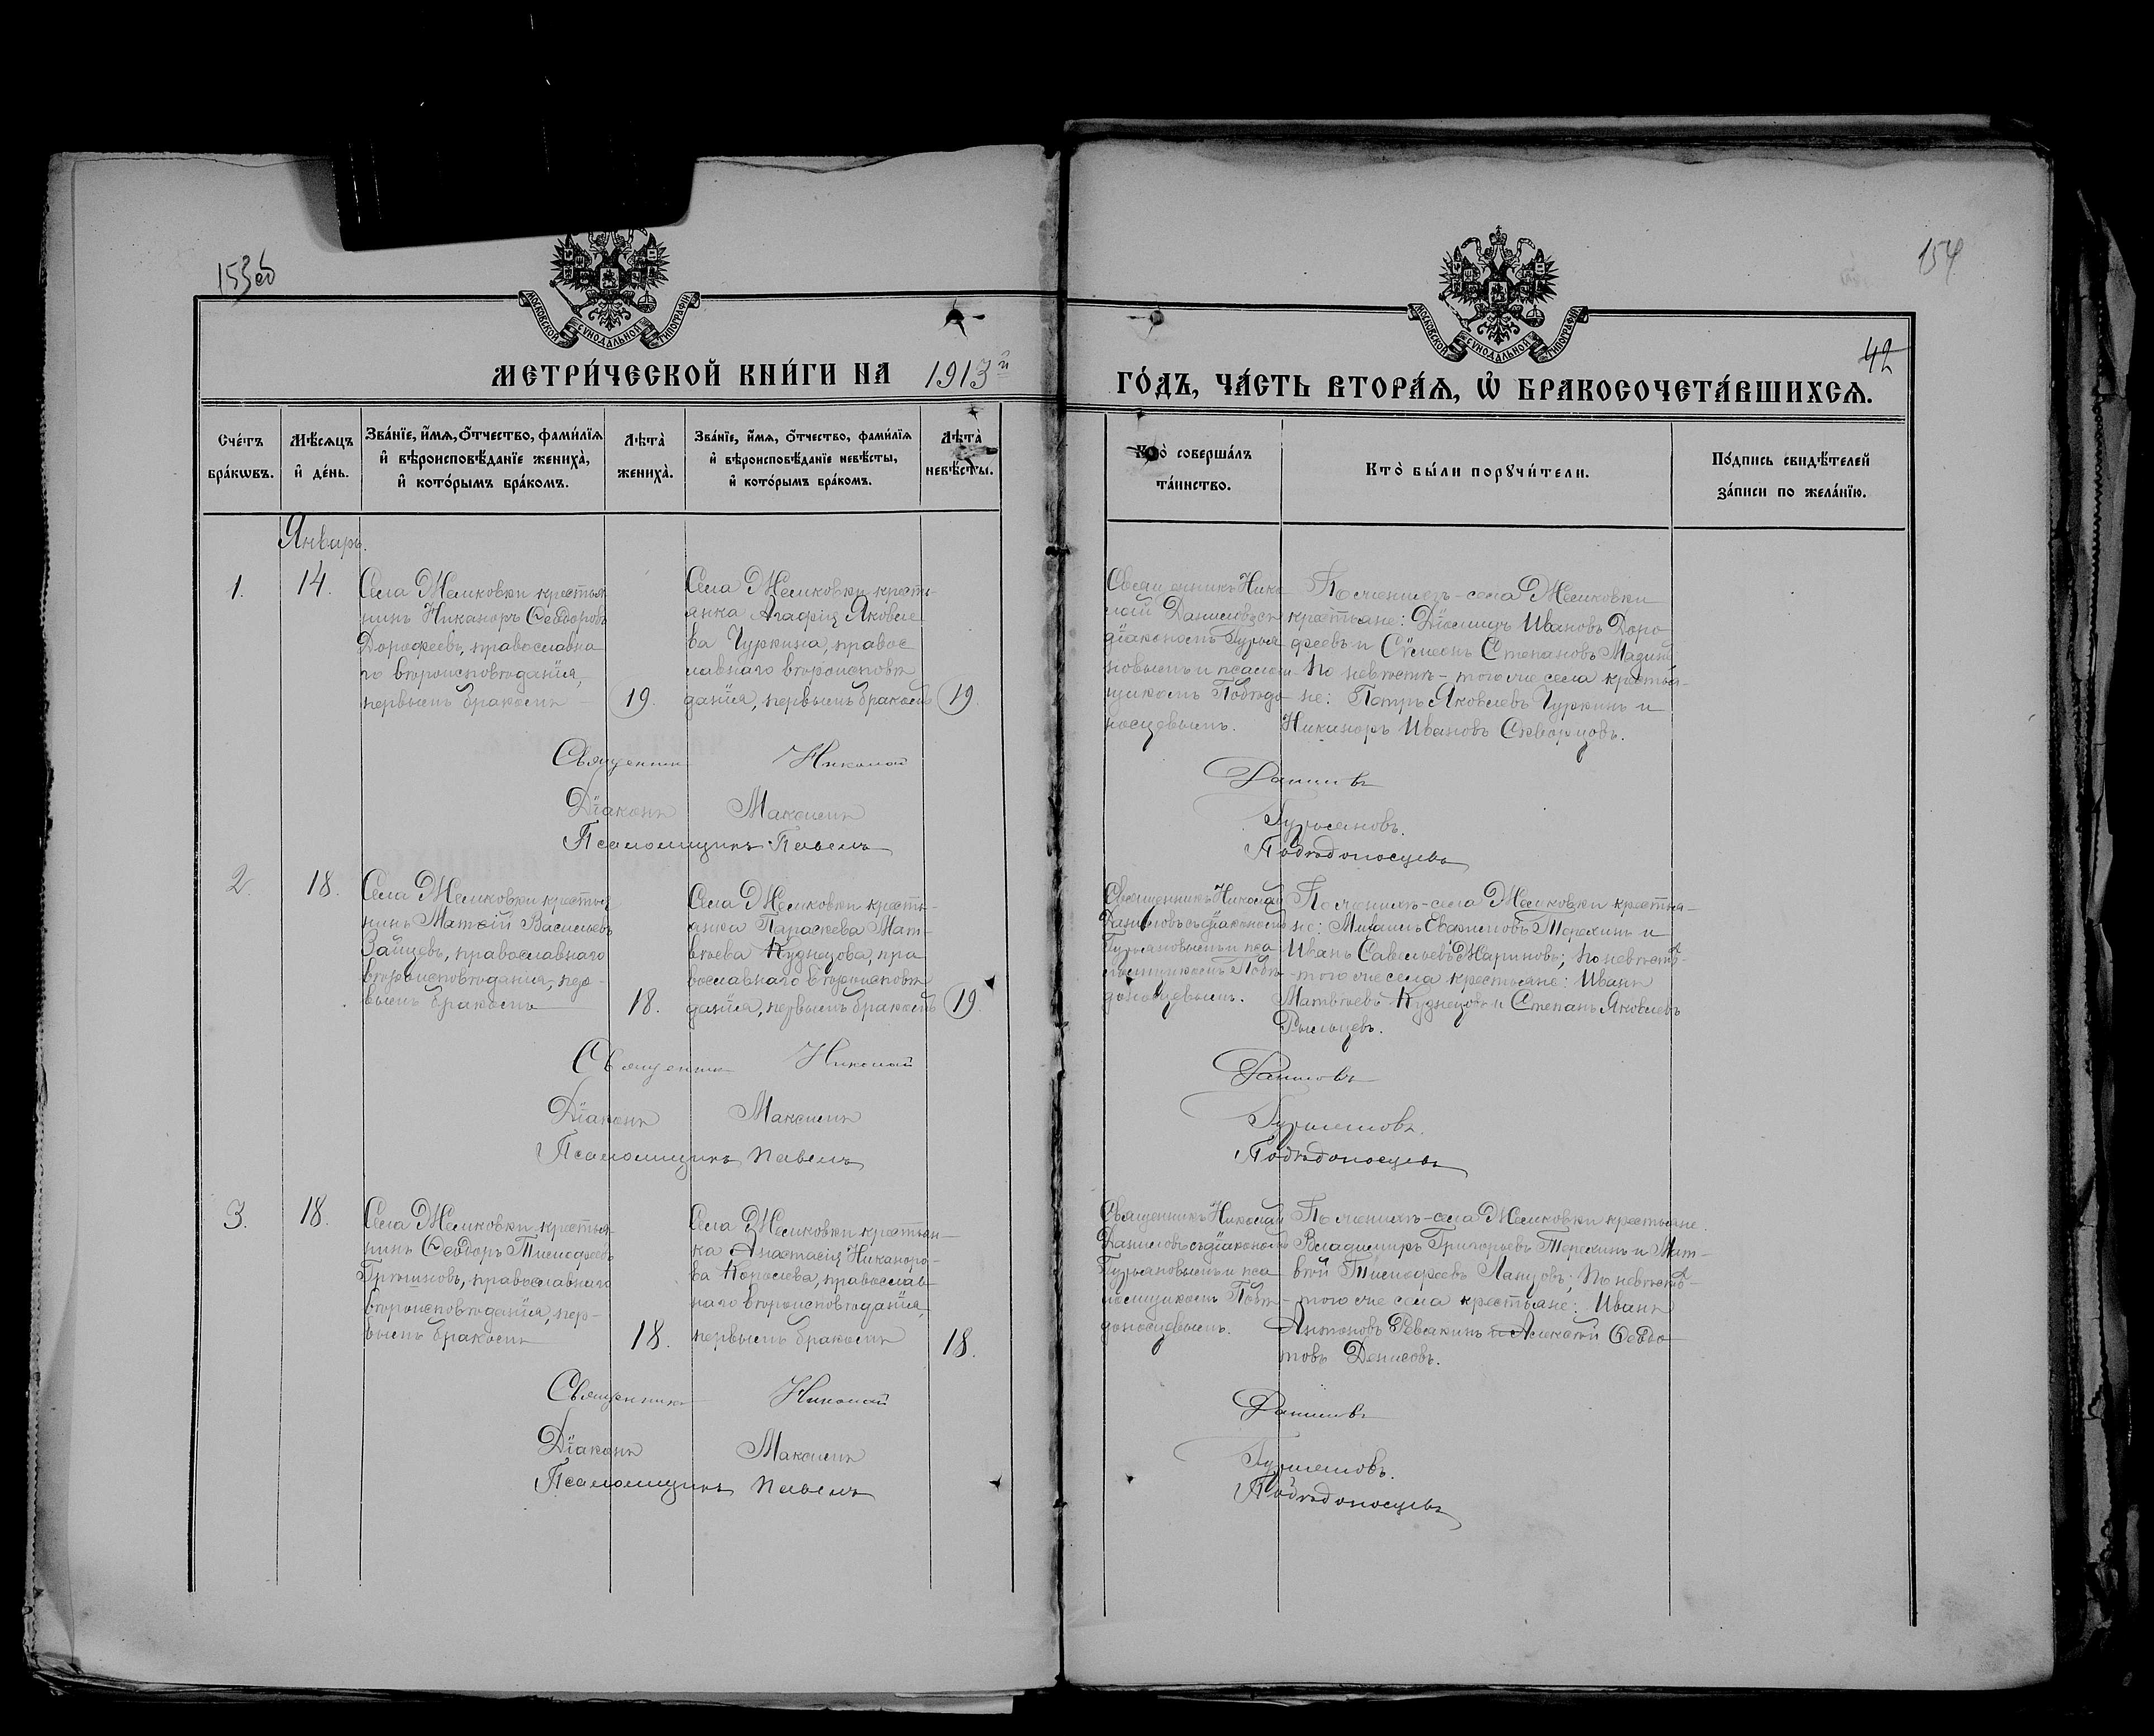 153об
154
42
МОСКОВСКОЙ СѴНОДАЛЬНОЙ ТИПОГРАФІИ
МОСКОВСКОЙ СѴНОДАЛЬНОЙ ТИПОГРАФІИ
МЕТРИ́ЧЕСКОЙ КНИ́ГИ НА 1913й
ГО́ДЪ, ЧА́СТЬ ВТОРА́Ѧ, Ѡ҆ БРАКОСОЧЕТА́ВШИХСѦ.
Сче́тъ бра́кѡвъ.
Мѣ́сѧцъ и҆ де́нь.
Зва́нїе, и҆́мѧ, ѻ҆́тчество, фами́лїѧ и҆ вѣроисповѣ́данїе жениха̀, и҆ кото́рымъ бра́комъ.
Лѣ́та̀ жениха̀.
Зва́нїе, и҆́мѧ, ѻ҆́тчество, фами́лїѧ и҆ вѣроисповѣ́данїе невѣ́сты, и҆ кото́рымъ бра́комъ.
Лѣ́та̀ невѣ́сты.
Кто̀ соверша́лъ та́инство.
Кто̀ бы́ли порꙋчи́тели.
По́дпись свидѣ́телей за́писи по жела́нїю.
Январь.
1.
14.
Села Жемковки крестья
нинъ Никаноръ Ѳеодоровъ
Дорофеевъ, православна
го вѣроисповѣданія,
первымъ бракомъ
19.
Села Жемковки кресть
янка Агафія Яковле
ва Чуркина, правос
лавнаго вѣроисповѣ
данія, первымъ бракомъ
19.
Священникъ Нико
лай Даниловъ съ
діакономъ Гурья
новымъ и псалом
щикомъ Побѣдо
носцевымъ.
По женихѣ - села Жемковки
крестьяне: Діомидъ Ивановъ Доро
феевъ и Сѵмеонъ Степановъ
по невѣстѣ - того же села крестья-
не: Петръ Яковлевъ Чуркинъ и
Никаноръ Ивановъ Скворцовъ.
Священникъ Николай Даниловъ
Діаконъ Максимъ Гурьяновъ.
Псаломщикъ Павелъ Побѣдоносцевъ
2.
18.
Села Жемковки крестья
нинъ Матѳій Васильевъ
Зайцевъ, православнаго
вѣроисповѣданія, пер-
вымъ бракомъ
18.
Села Жемковки кресть-
янка Параскева Мат-
вѣева Кузнецова, пра
вославнаго вѣроисповѣ
данія, первымъ бракомъ
19.
Священникъ Николай
Даниловъ съ діакономъ
Гурьяновымъ и пса
ломщикомъ Побѣ
доносцевымъ.
По женихѣ - села Жемковки крестья-
не: Михаилъ Евфимовъ Терехинъ и
Иванъ Савельевъ Жариновъ; по невѣстѣ-
- того же села крестьяне: Иванъ
Матвѣевъ Кузнецовъ и Степанъ Яковлевъ
Рыльцевъ.
Священникъ Николай Даниловъ
Діаконъ Максимъ Гурьяновъ.
Псаломщикъ Павелъ Побѣдоносцевъ
3.
18.
Села Жемковки крестья
нинъ Ѳеодоръ Тимофеевъ
православнаго
вѣроисповѣданія, пер-
вымъ бракомъ
18.
Села Жемковки крестьян-
ка Анастасія Никаноро-
ва Королева, православ-
наго вѣроисповѣданія,
первымъ бракомъ
18.
Священникъ Николай
Даниловъ съ діакономъ
Гурьяновымъ и пса
ломщикомъ Побѣ
доносцевымъ.
По женихѣ - села Жемковки крестьяне
Владимиръ Григорьевъ Терехинъ и Мат-
вей Тимофеевъ по невѣстѣ-
- того же села крестьяне: Иванъ
Антоновъ Ревякинъ и Алексѣй Ѳедо
товъ Денисовъ.
Священникъ Николай Даниловъ
Діаконъ Максимъ Гурьяновъ.
Псаломщикъ Павелъ Побѣдоносцевъ